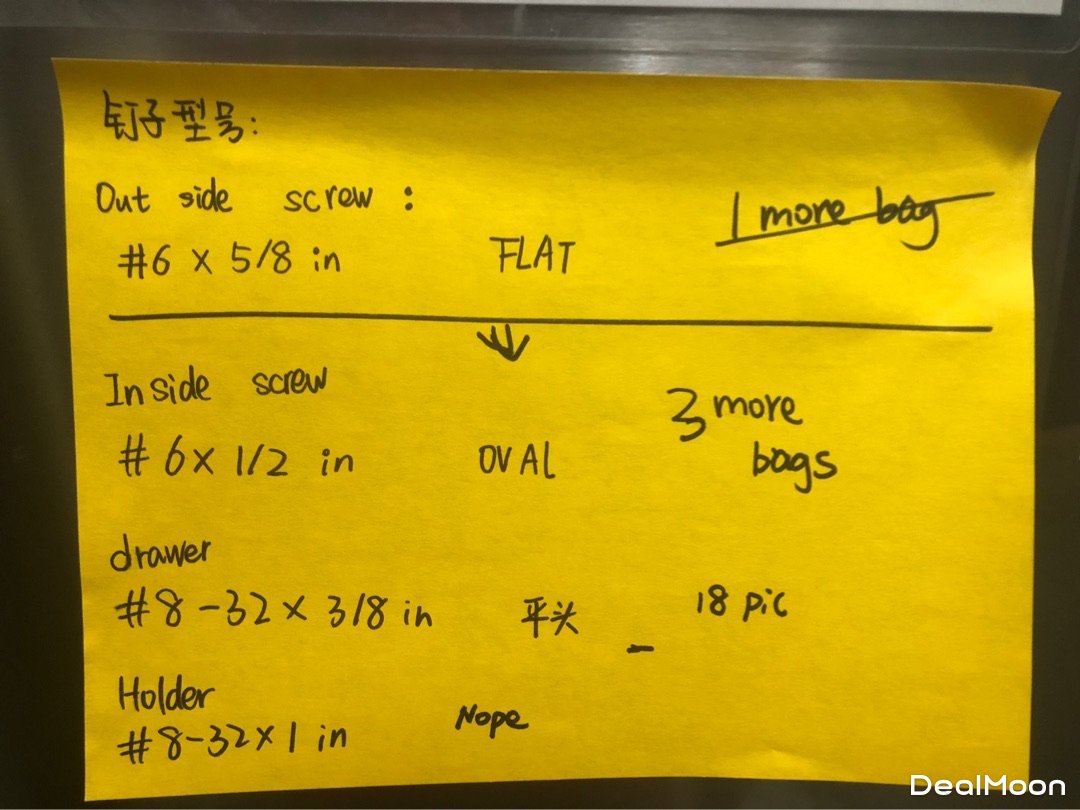 钉子型号:
Out side screw :
1 more bag
#6 x 5/8 in FLAT
Inside screw
3 more
# 6x 1/2 in OVAL bags
drawer
#8-32 x 3/8 in 平头 - 18 pic
Holder
#8-32x1 in Nope
DealMoon